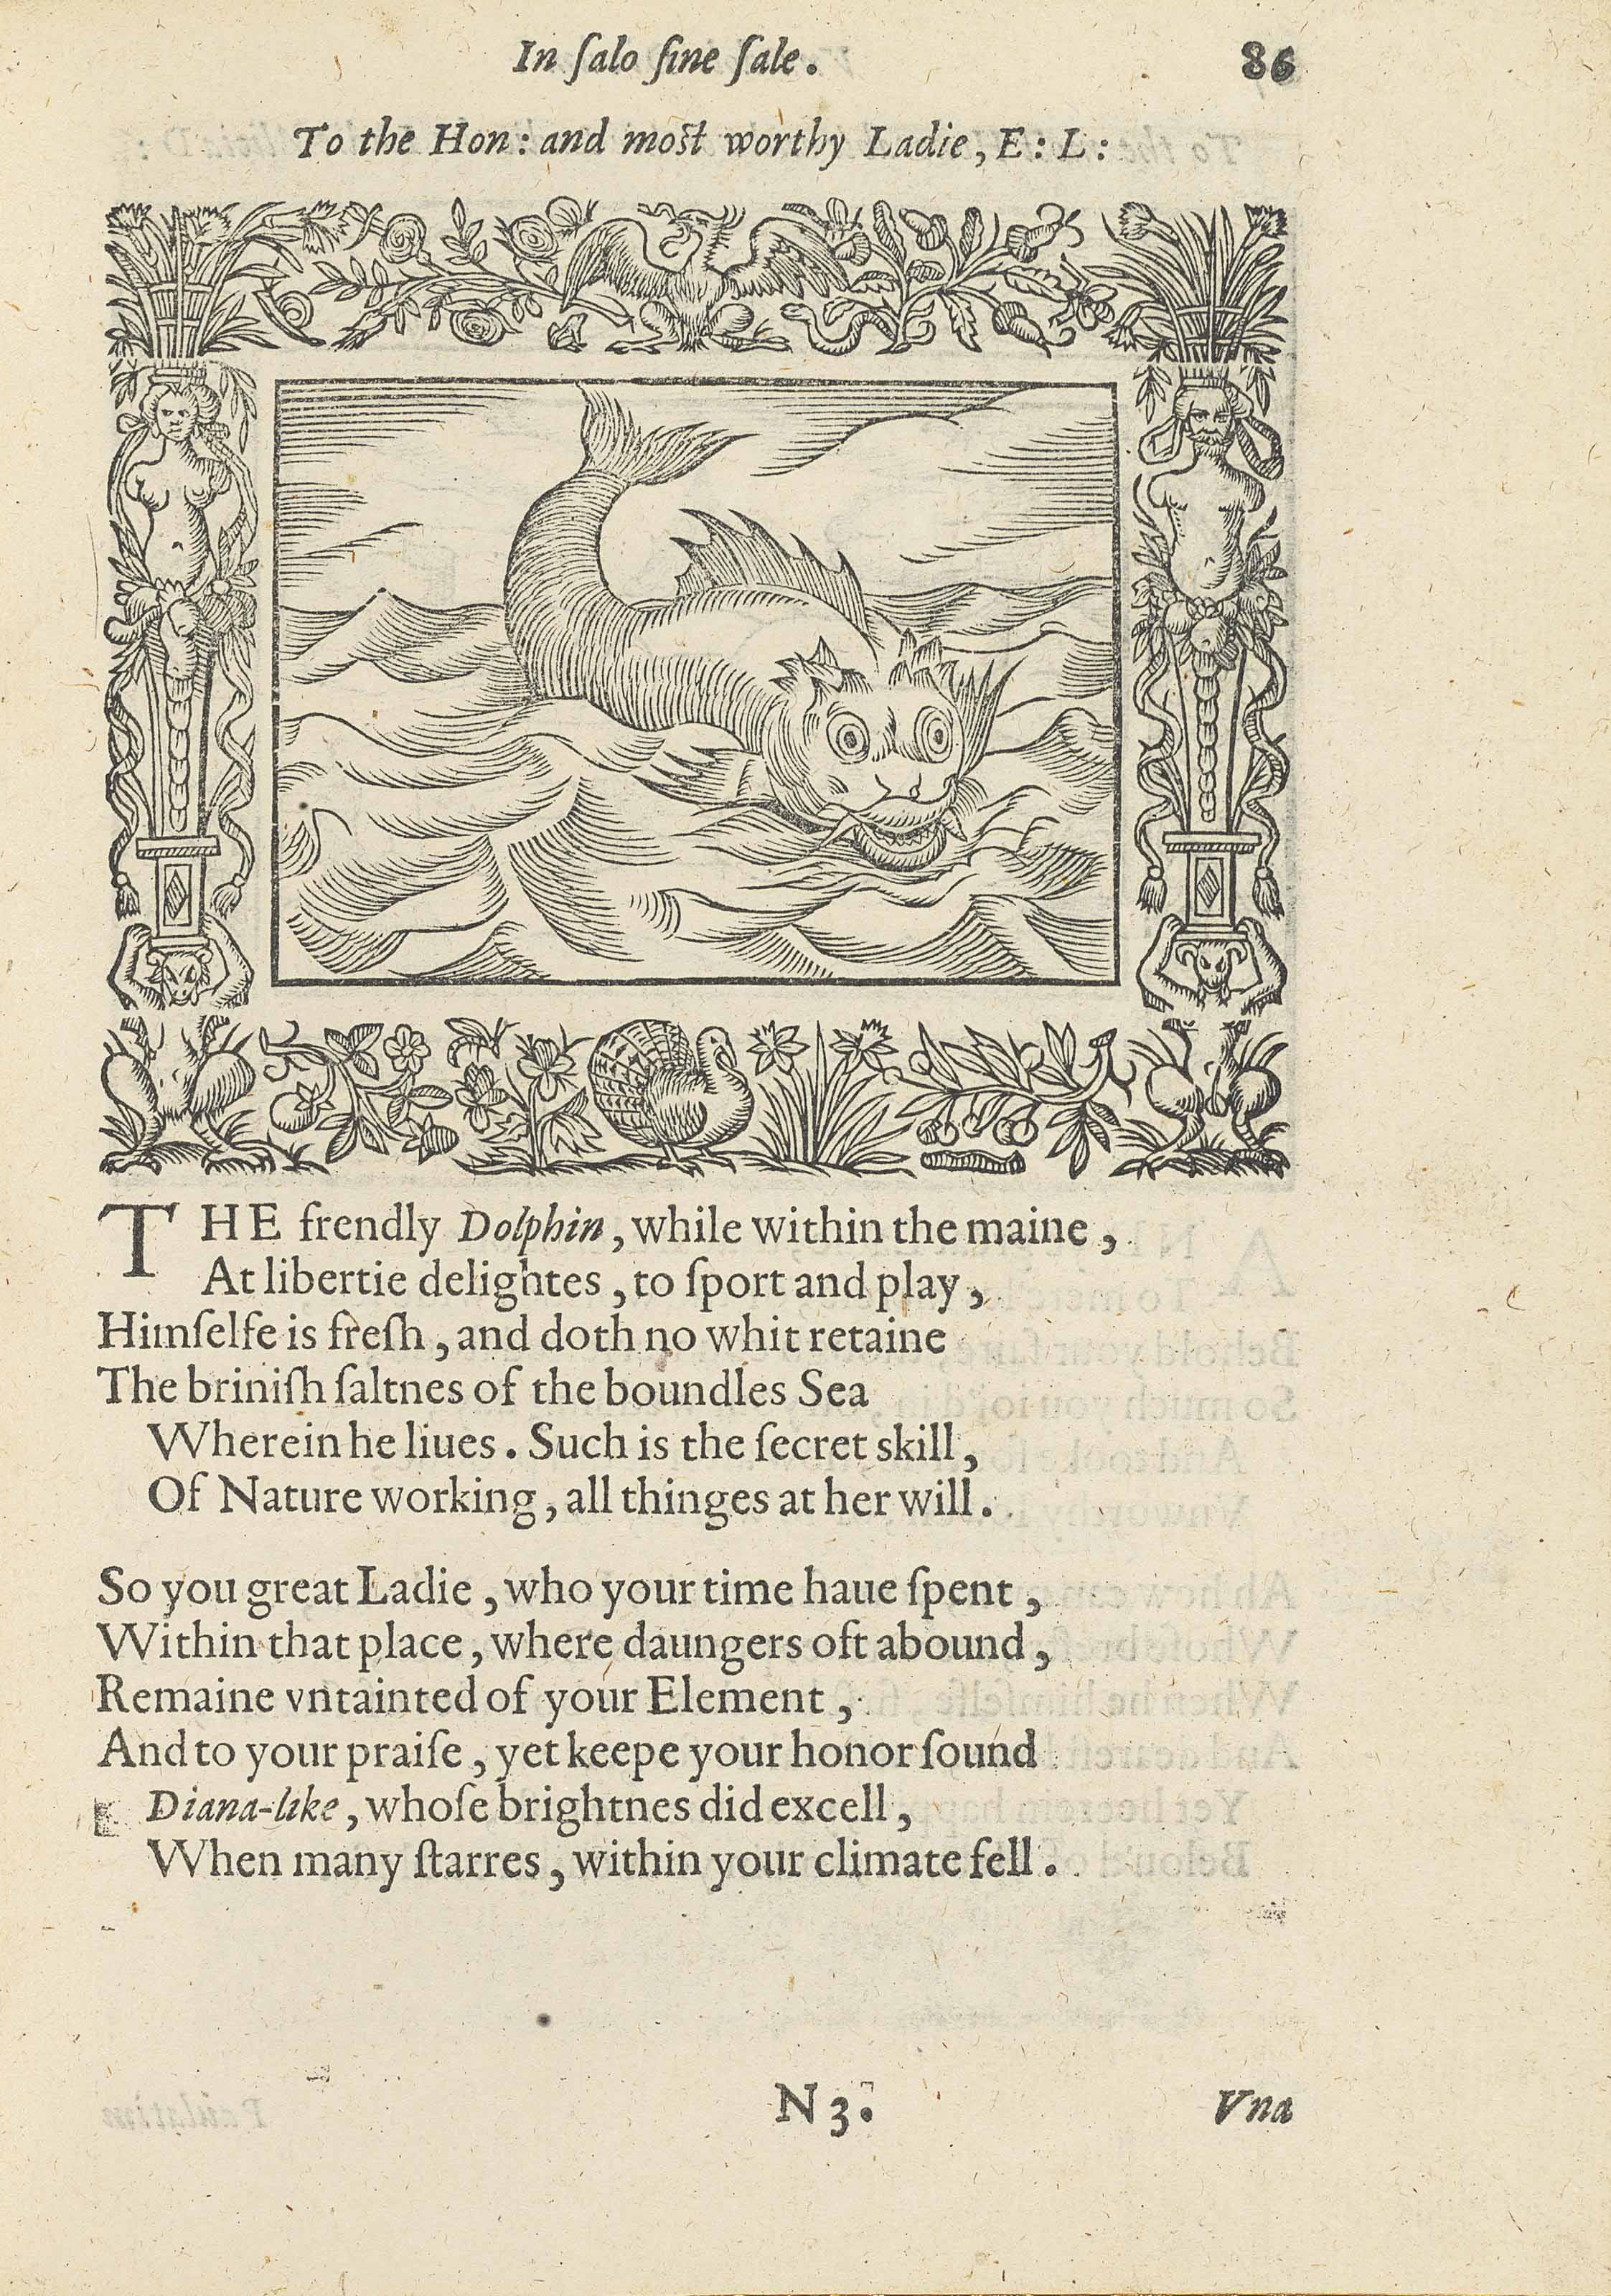 In ſalo ſine ſale.
86
To the Hon: and moſt worthy Ladie, E: L:
THE frendly Dolphin, while within the maine,
At libertie delightes, to ſport and play,
Himſelfe is freſh, and doth no whit retaine
The briniſh ſaltnes of the boundles Sea
Wherein he liues. Such is the ſecret skill,
Of Nature working, all thinges at her will.
So you great Ladie, who your time haue ſpent,
Within that place, where daungers oft abound,
Remaine vntainted of your Element,
And to your praiſe, yet keepe your honor ſound
Diana-like, whoſe brightnes did excell,
When many ſtarres, within your climate fell.
N 3.
Vna